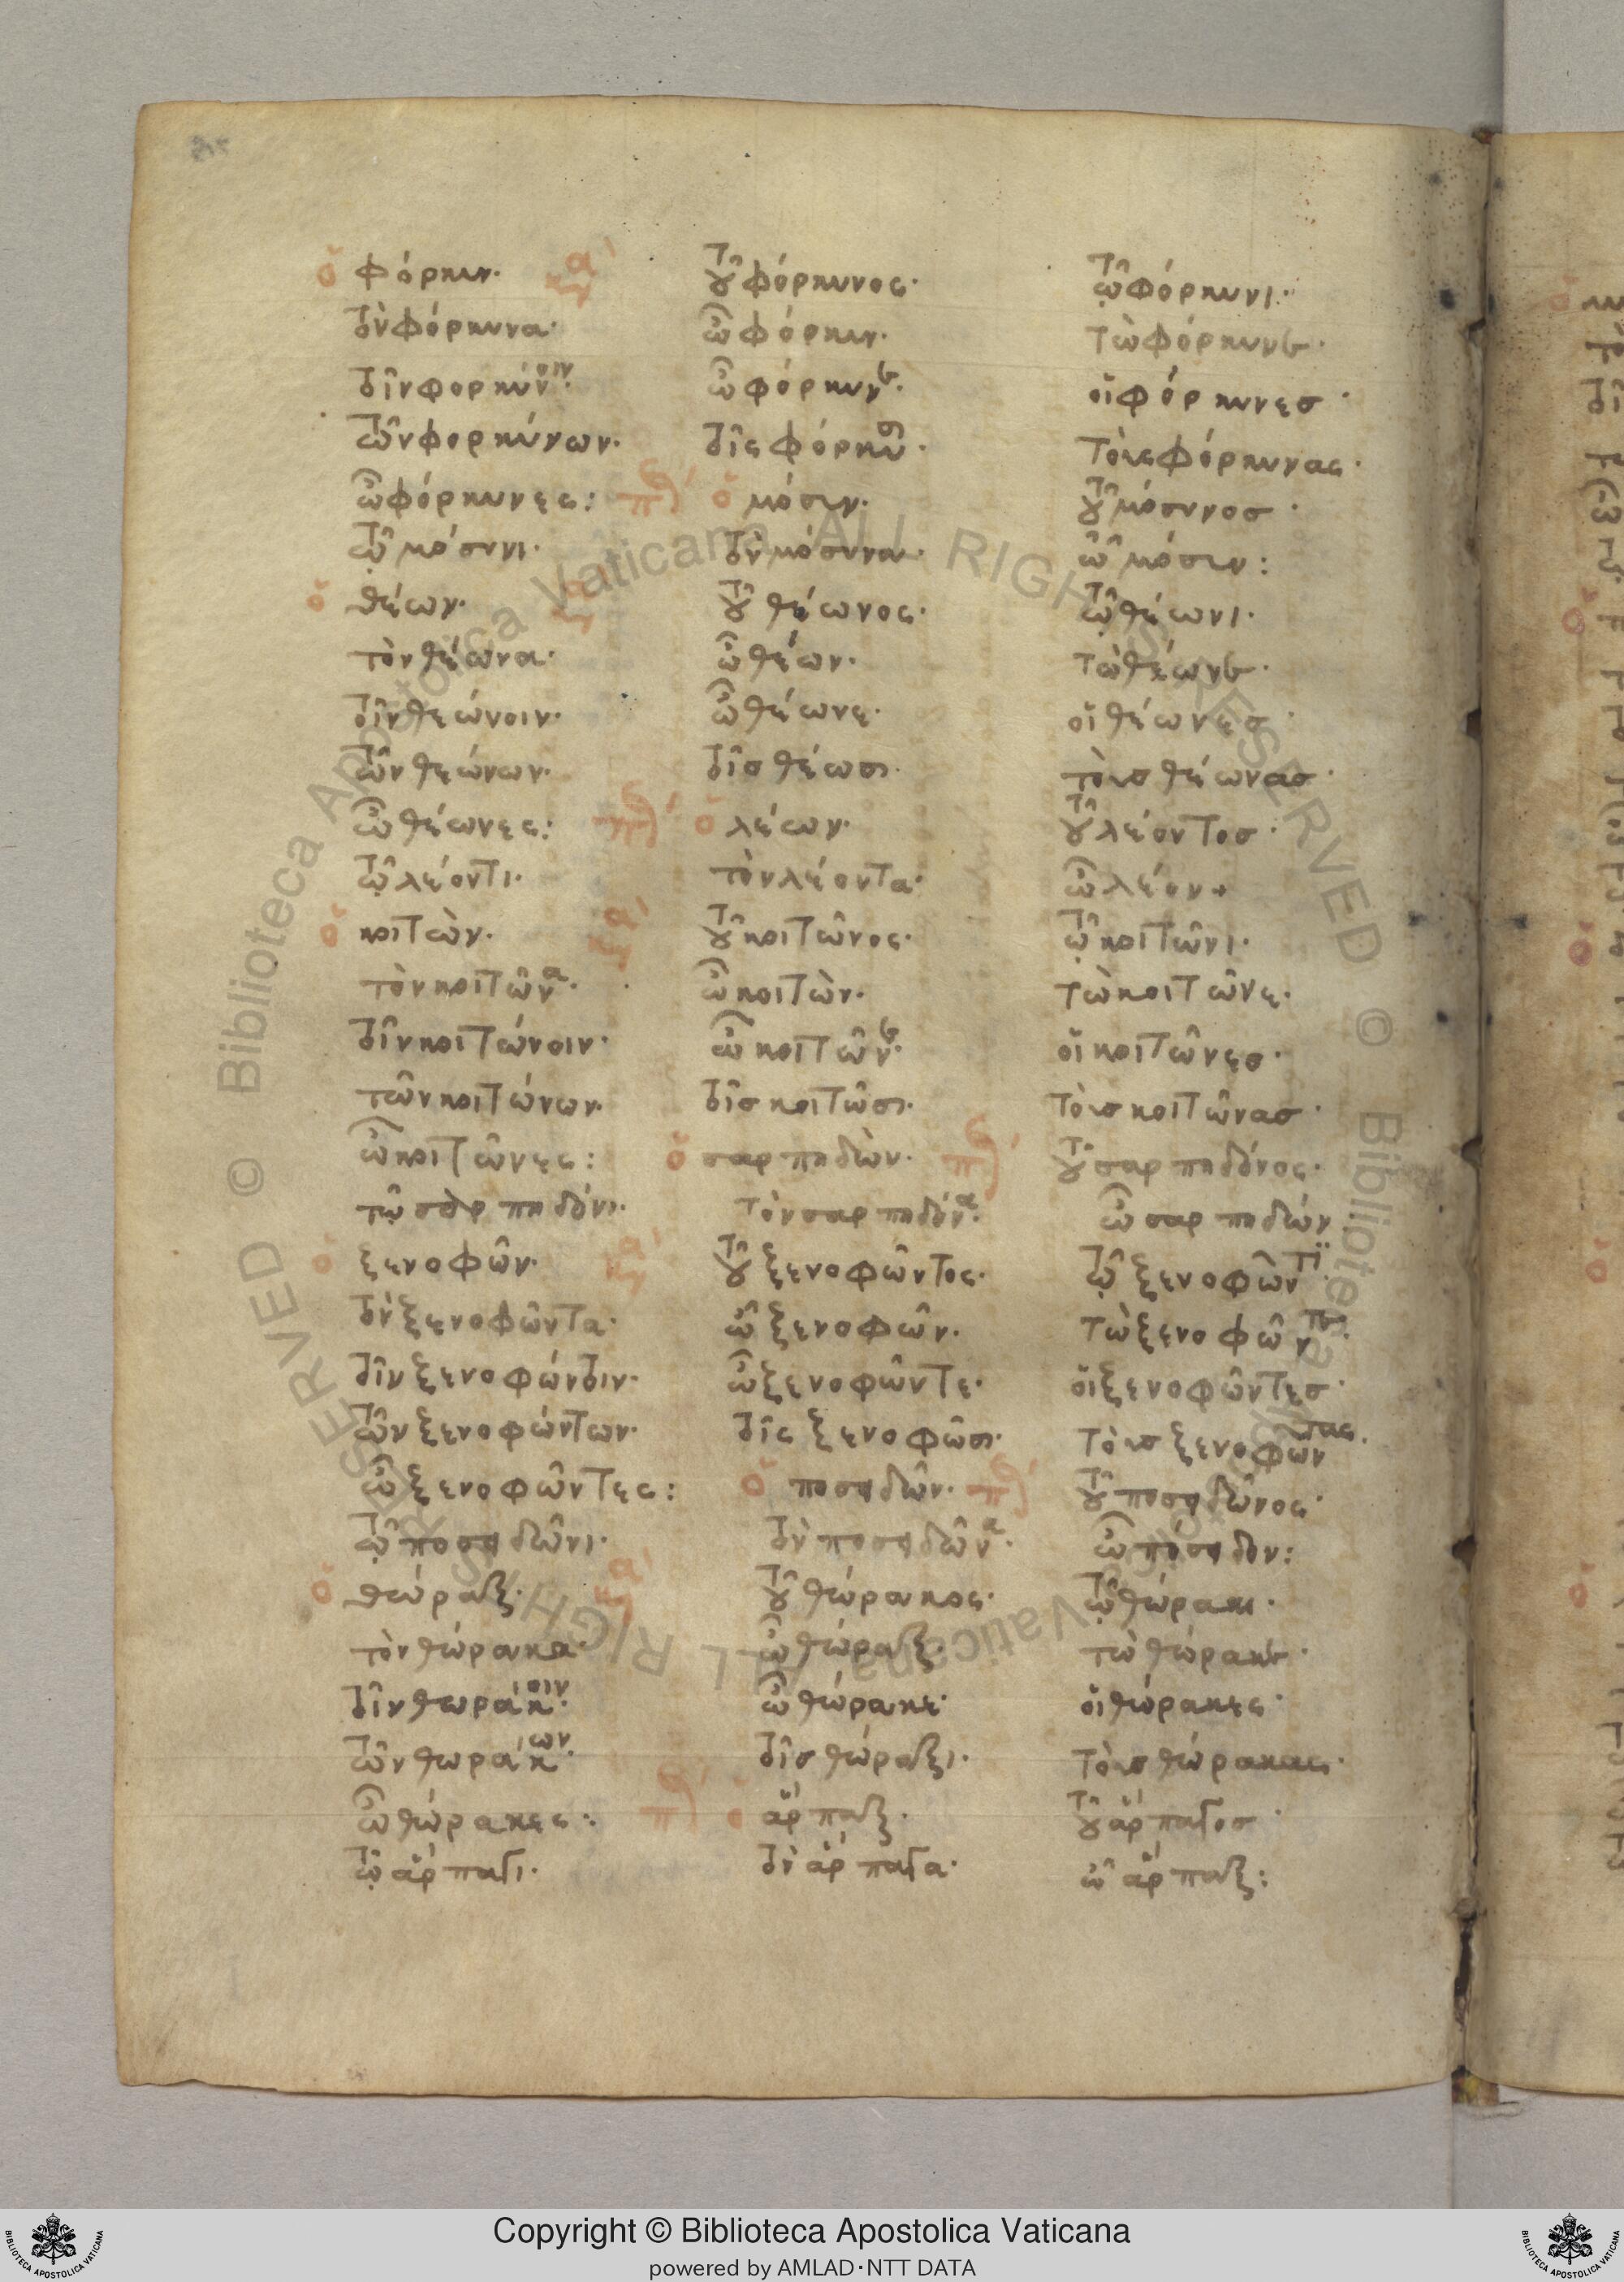 ὁ φόρκυν· κα′ τοῦ φόρκυνος· τῷ φόρκυνι·
τὸν φόρκυνα· ὦ φόρκυν· τὼ φόρκυνε·
τοῖν φορκύνοιν· ὦ φόρκυνε· οἱ φόρκυνεσ·
τῶν φορκύνων· τοῖς φόρκυσι· τοὺς φόρκυνας·
ὦ φόρκυνες: ὁ μόσυν· τοῦ μόσυνοσ·
τῷ μόσυνι· τὸν μόσυνα· ὦ μόσυν:
ὁ θέων· τοῦ θέωνος· τῷ θέωνι·
τὸν θέωνα· ὦ θέων· τὼ θέωνε·
τοῖν θεώνοιν· ὦ θέωνε· οἱ θέωνεσ·
τῶν θεώνων· τοῖσ θέωσι· τοὺσ θέωνασ·
ὦ θέωνες: ὁ λέων· τοῦ λέοντοσ·
τῷ λέοντι· τὸν λέοντα· ὦ λέον+
ὁ κοιτὼν· κα′ τοῦ κοιτῶνος· τῷ κοιτῶνι·
τὸν κοιτῶνα· ὦ κοιτὼν· τὼ κοιτῶνε·
τοῖν κοιτώνοιν· ὦ κοιτῶνε· οἱ κοιτῶνεσ·
τῶν κοιτώνων· τοῖσ κοιτῶσι· τοὺσ κοιτῶνασ·
ὦ κοιτῶνες: ὁ σαρπηδὼν· τοῦ σαρπηδόνος·
τῷ σαρπηδόνι· τὸν σαρπηδόνα· ὦ σαρπηδών·
ὁ ξενοφῶν· κα′ τοῦ ξενοφῶντος· τῷ ξενοφῶντϊ·
τὸν ξενοφῶντα· ὦ ξενοφῶν· τὼ ξενοφῶντε·
τοῖν ξενοφώντοιν· ὦ ξενοφῶντε· οἱ ξενοφῶντεσ·
τῶν ξενοφώντων· τοῖς ξενοφῶσι· τοὺσ ξενοφῶντας·
ὦ ξενοφῶντες: ὁ ποσειδῶν· τοῦ ποσειδῶνος·
τῷ ποσειδῶνι· τὸν ποσειδῶνα· ὦ πόσειδον:
ὁ θώραξ· κα′ τοῦ θώρακος· τῷ θώρακι·
τὸν θώρακα· ὦ θώραξ· τὼ θώρακε·
τοῖν θωράκοιν· ὦ θώρακε· οἱ θώρακες·
τῶν θωράκων· τοῖσ θώραξι· τοὺσ θώρακας·
ὦ θώρακες: ὁ ἅρπαξ· τοῦ ἅρπαγοσ·
τῷ ἅρπαγι· τὸν ἅρπαγα· ὦ ἅρπαξ:
Copyright © Biblioteca Apostolica Vaticana
powered by AMLAD·NTT DATA